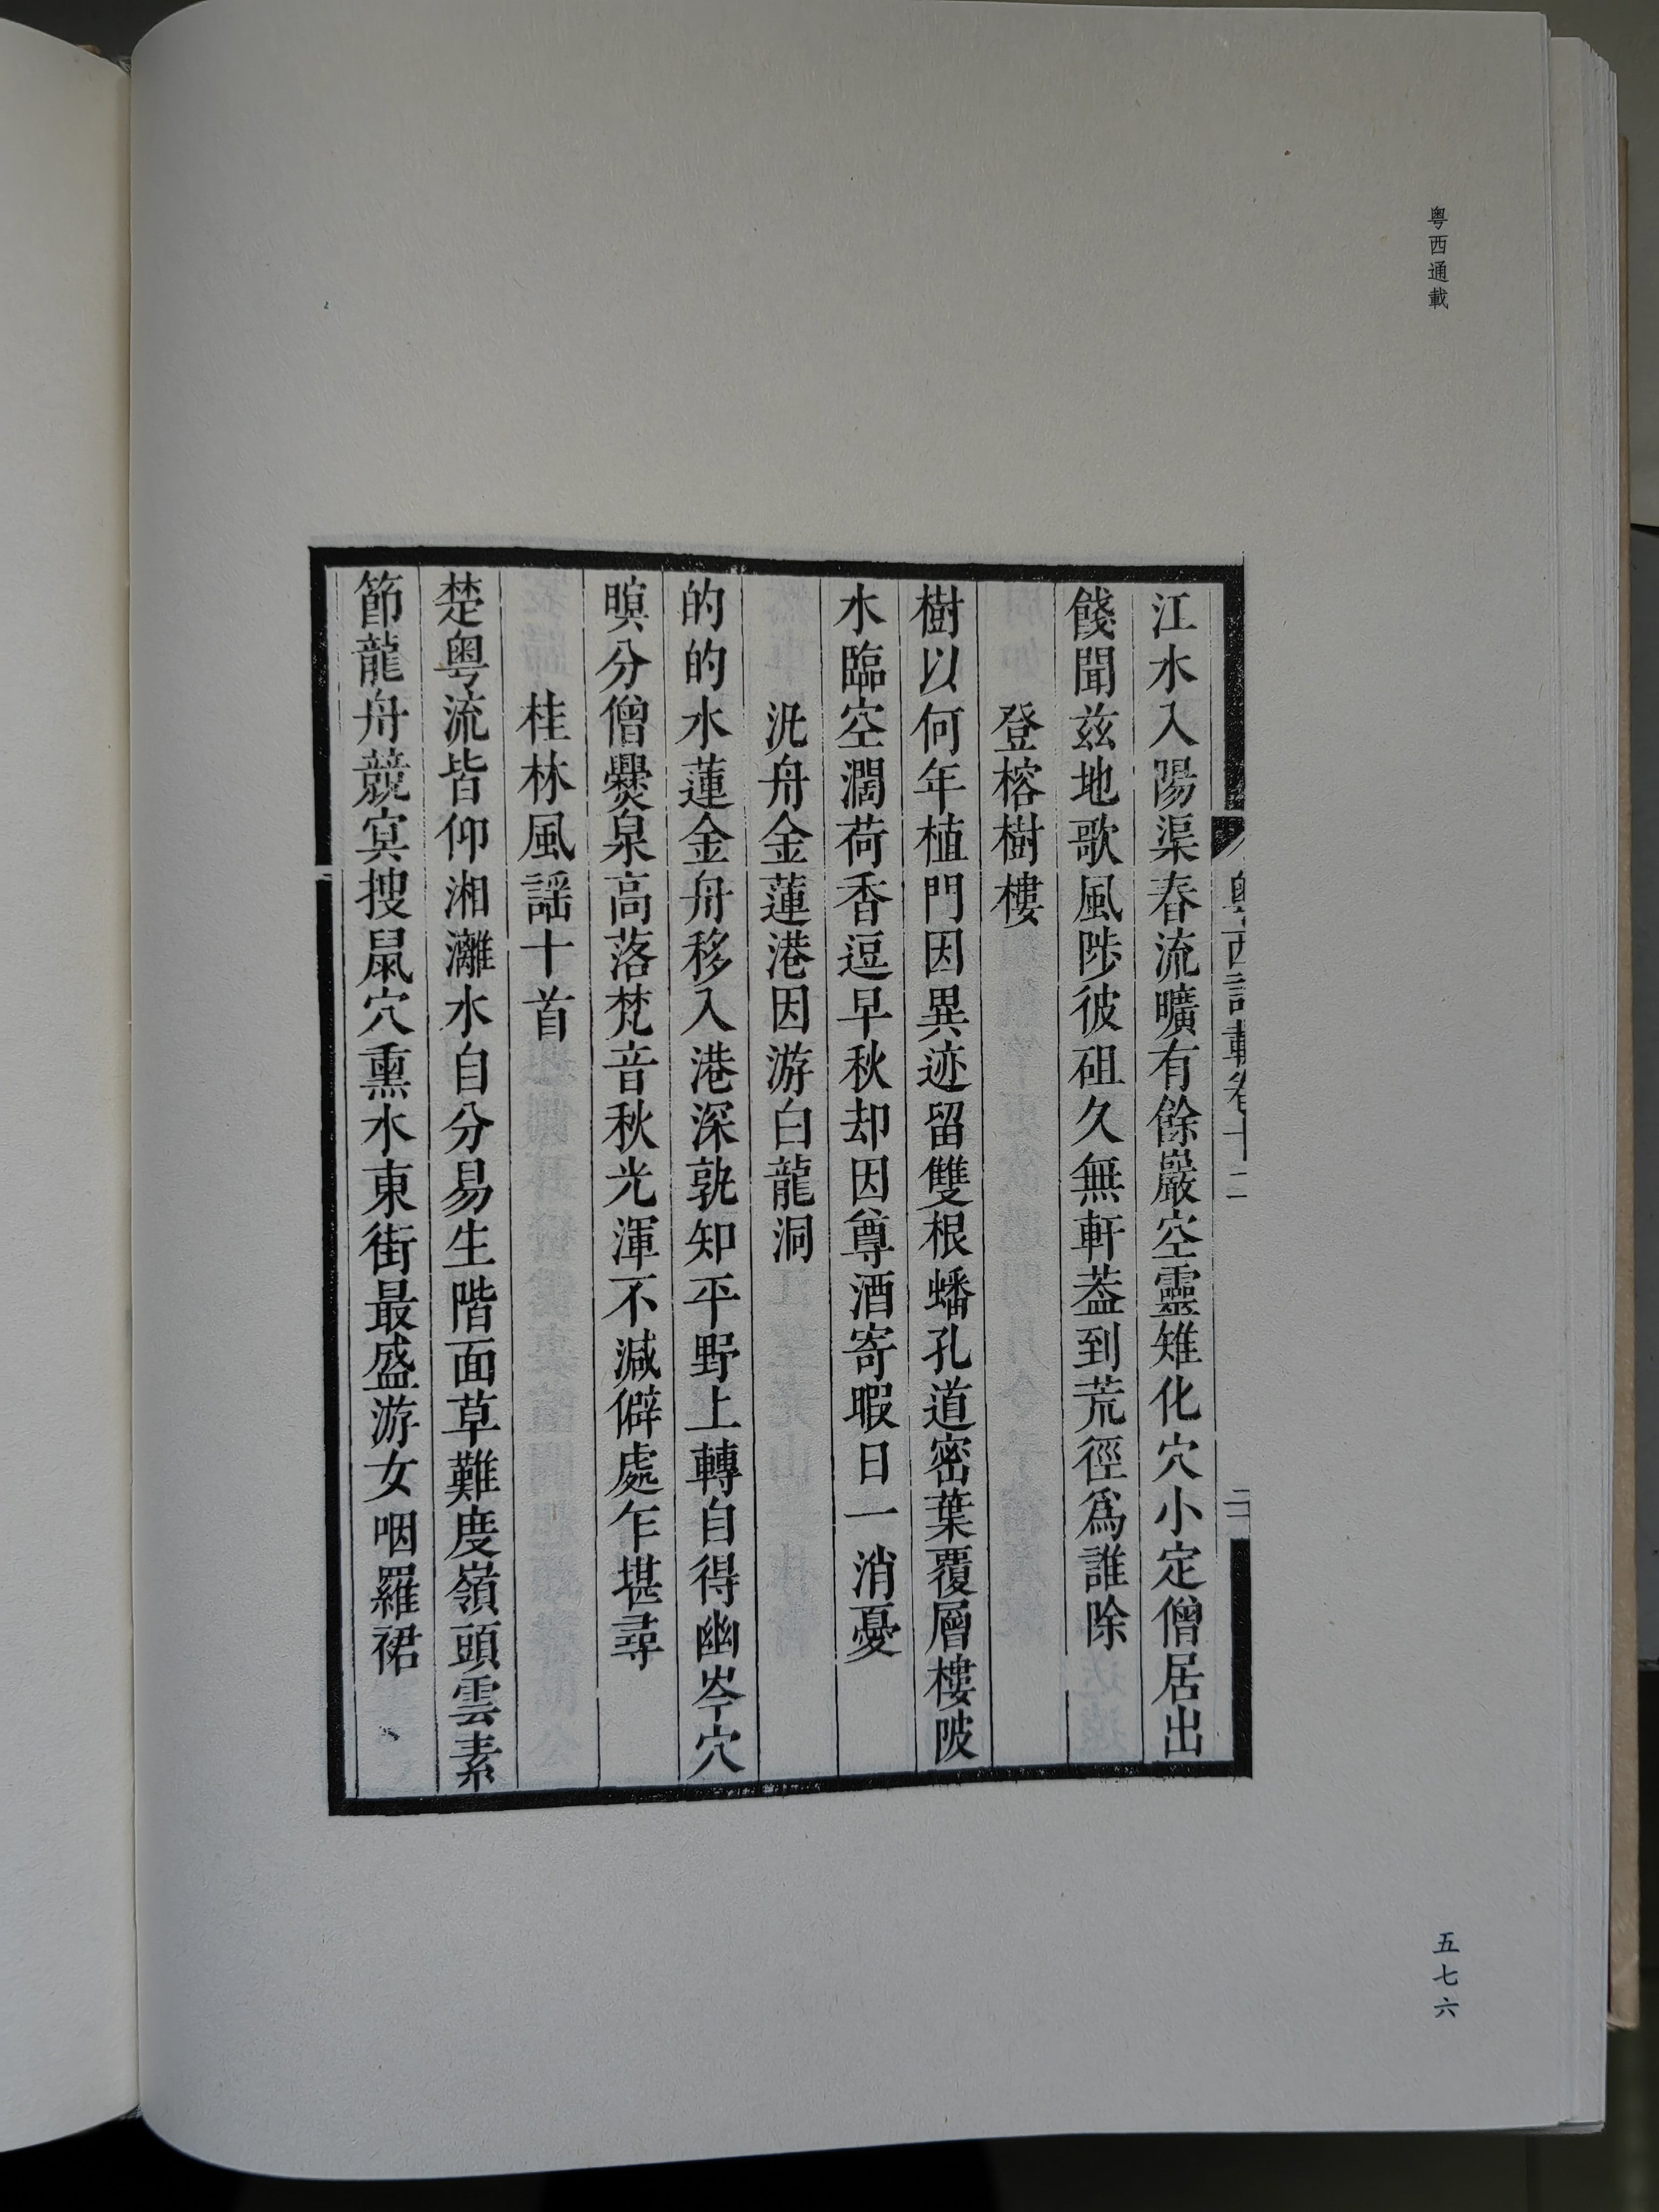 粤西通載
粤西詩載卷十二
二十
江水入陽渠春流曠有餘巖空靈雉化穴小定僧居出
餞聞茲地歌風陟彼砠久無軒葢到荒徑爲誰除
登榕樹樓
樹以何年植門因異迹留雙根蟠孔道密葉覆層樓陂
水臨空濶荷香逗早秋却因尊酒寄暇日一消憂
汎舟金蓮港因游白龍洞
的的水蓮金舟移入港深孰知平野上轉自得幽岑穴
暝分僧爨泉高落梵音秋光渾不減僻處乍堪尋
桂林風謡十首
楚粤流皆仰湘灕水自分易生階面草難度嶺頭雲素
節龍舟競㝠搜鼠穴熏水東街最盛游女咽羅裙
五七六